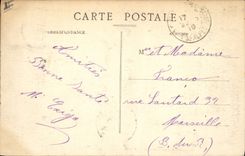 CARTE POSTALE
CORRESPONDANCE
Amitiés
Bonne Santé
M. et Madame
Franco
rue Santard 32
Marseille
(B. du R.)